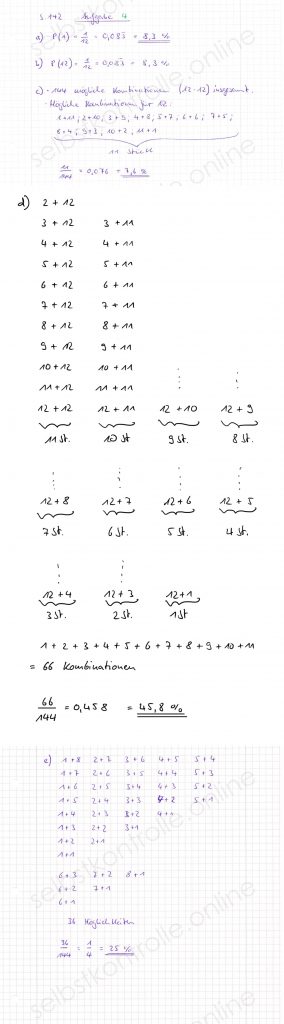 S. 142 Aufgabe 4
a) P(1) = 1/12 = 0,083 = 8,3 %
b) P(12) = 1/12 = 0,083 = 8,3 %
c) 144 mögliche Kombinationen (12·12) insgesamt.
Mögliche Kombinationen für 12:
1+11 ; 2+10 ; 3+9 ; 4+8 ; 5+7 ; 6+6 ; 7+5 ;
8+4 ; 9+3 ; 10+2 ; 11+1
11 Stück
11/144 = 0,076 = 7,6 %
d) 2 + 12
3 + 12 3 + 11
4 + 12 4 + 11
5 + 12 5 + 11
6 + 12 6 + 11
7 + 12 7 + 11
8 + 12 8 + 11
9 + 12 9 + 11
10 + 12 10 + 11
11 + 12 11 + 11
12 + 12 12 + 11 12 + 10 12 + 9
11 St. 10 St. 9 St. 8 St.
12 + 8 12 + 7 12 + 6 12 + 5
7 St. 6 St. 5 St. 4 St.
12 + 4 12 + 3 12 + 1
3 St. 2 St. 1 St.
1 + 2 + 3 + 4 + 5 + 6 + 7 + 8 + 9 + 10 + 11
= 66 Kombinationen
66/144 = 0,458 = 45,8 %
e) 1+8 2+7 3+6 4+5 5+4
1+7 2+6 3+5 4+4 5+3
1+6 2+5 3+4 4+3 5+2
1+5 2+4 3+3 4+2 5+1
1+4 2+3 3+2 4+1
1+3 2+2 3+1
1+2 2+1
1+1
6+3 7+2 8+1
6+2 7+1
6+1
36 Möglichkeiten
36/144 = 1/4 = 25 %
selbstkontrolle.online
selbstkontrolle.online